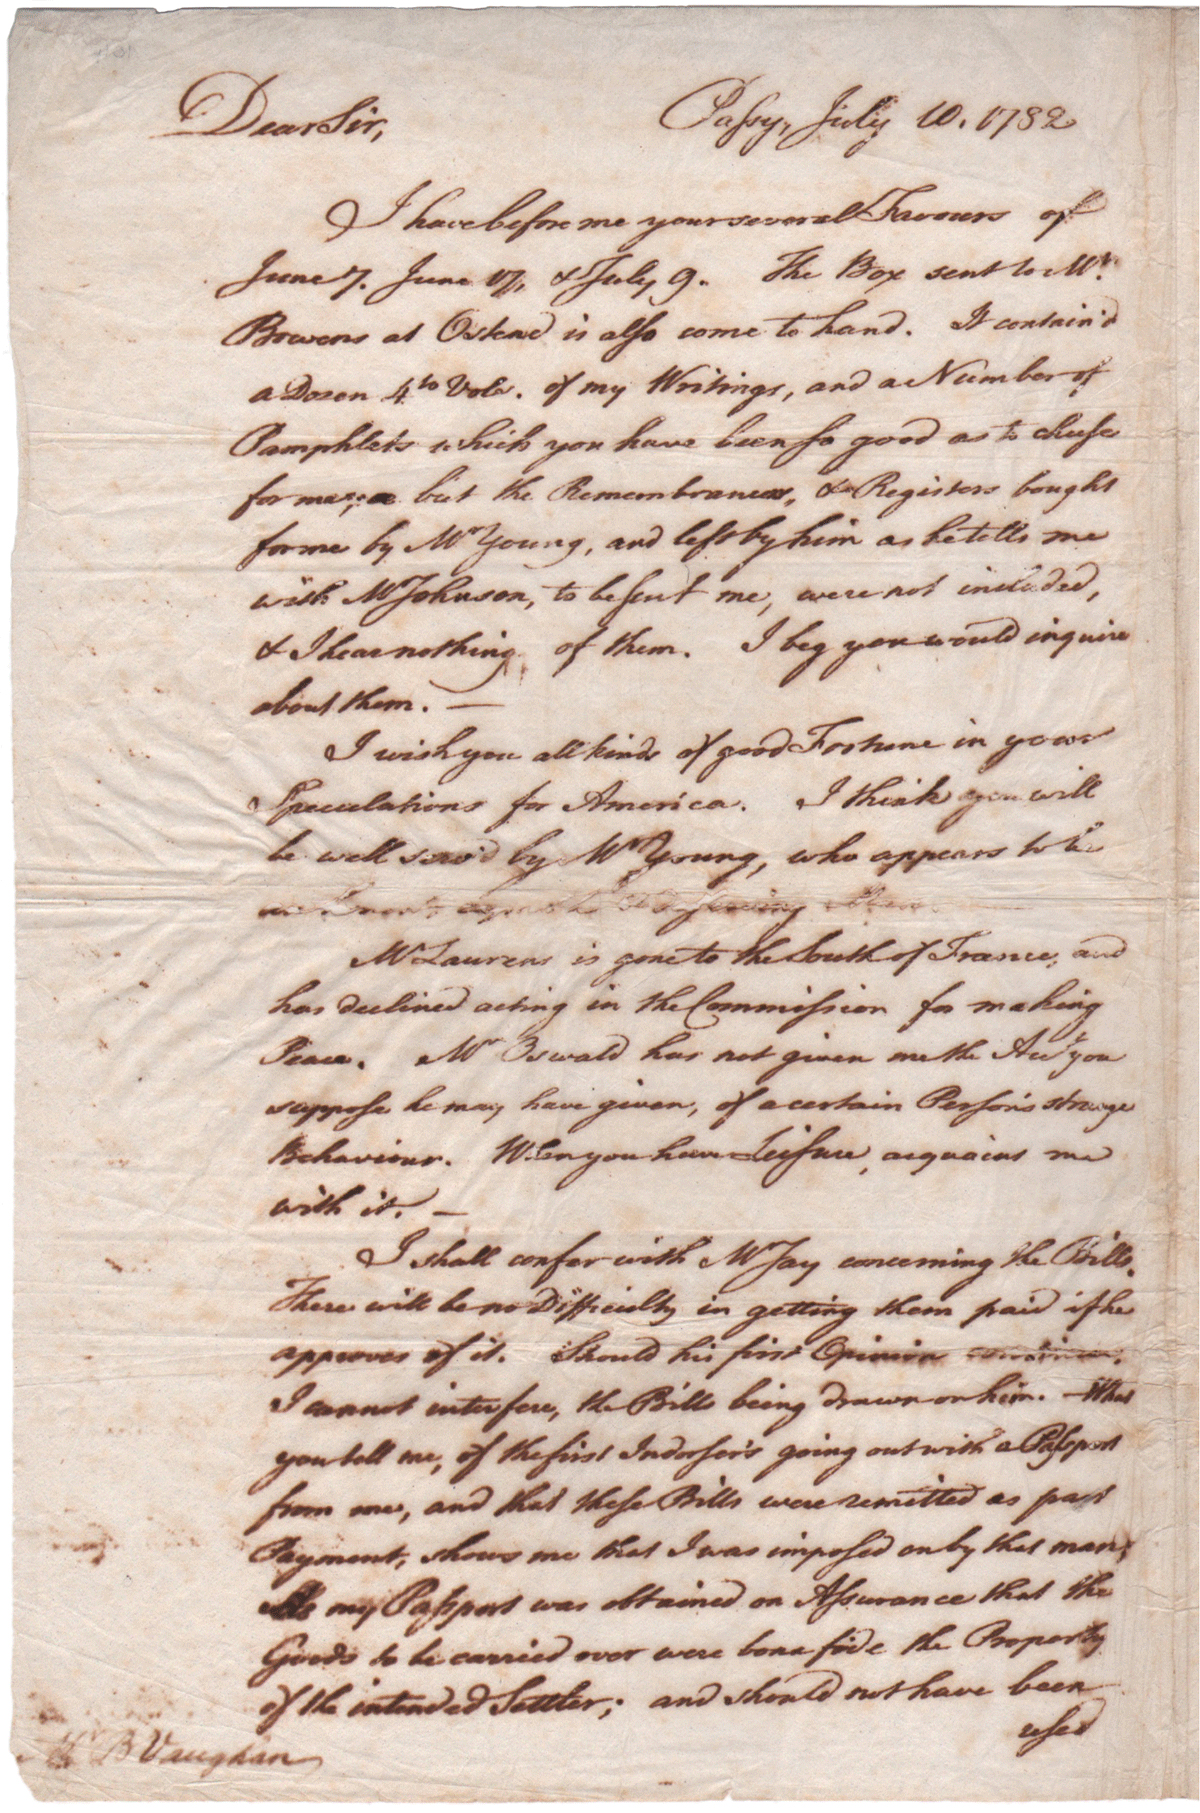 Dear Sir,
Passy, July 10. 1782
I have before me your several Favours of
June 7. June 17, & July 9. The Box sent to Mr.
Bowens at Ostend is also come to hand. It contain'd
a Dozen 4to Vols. of my Writings, and a Number of
Pamphlets which you have been so good as to chuse
for me; but the Remembrancers, & Registers bought
for me by Mr Young, and left by him as he tells me
with Mr Johnson, to be sent me, were not included,
& I hear nothing of them. I beg you would inquire
about them. —
I wish you all kinds of good Fortune in your
Speculations for America. I think you will
be well serv'd by Mr Young, who appears to be
Mr Laurens is gone to the South of France, and
has declined acting in the Commission for making
Peace. Mr Oswald has not given me the Acct you
suppose he may have given, of a certain Person's strange
Behaviour. When you have Leisure, acquaint me
with it. —
I shall confer with Mr Jay concerning the Bills.
There will be no Difficulty in getting them paid if he
approves of it. Should his first Opinion continue,
I cannot interfere, the Bills being drawn on him. — What
you tell me, of the first Indorser's going out with a Passport
from me, and that these Bills were remitted as part
Payment, shows me that I was imposed on by that man;
As my Passport was obtained on Assurance that the
Goods to be carried over were bona fide the Property
of the intended Settler; and should not have been
used
Mr B Vaughan